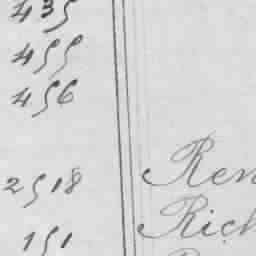 435
455
456
2518 Ren
151 Rich